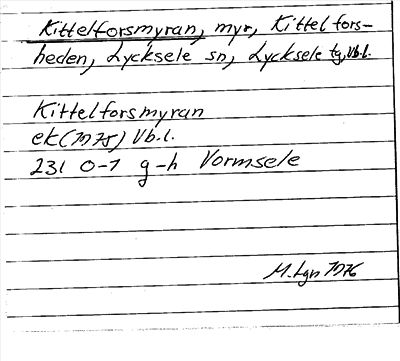 Kittelforsmyran, myr, Kittelfors-
heden, Lycksele sn, Lycksele tg, Vb.l.
Kittelforsmyran
ek (1975) Vb.l.
231 0-1 g-h Vormsele
M. Lgn 1976